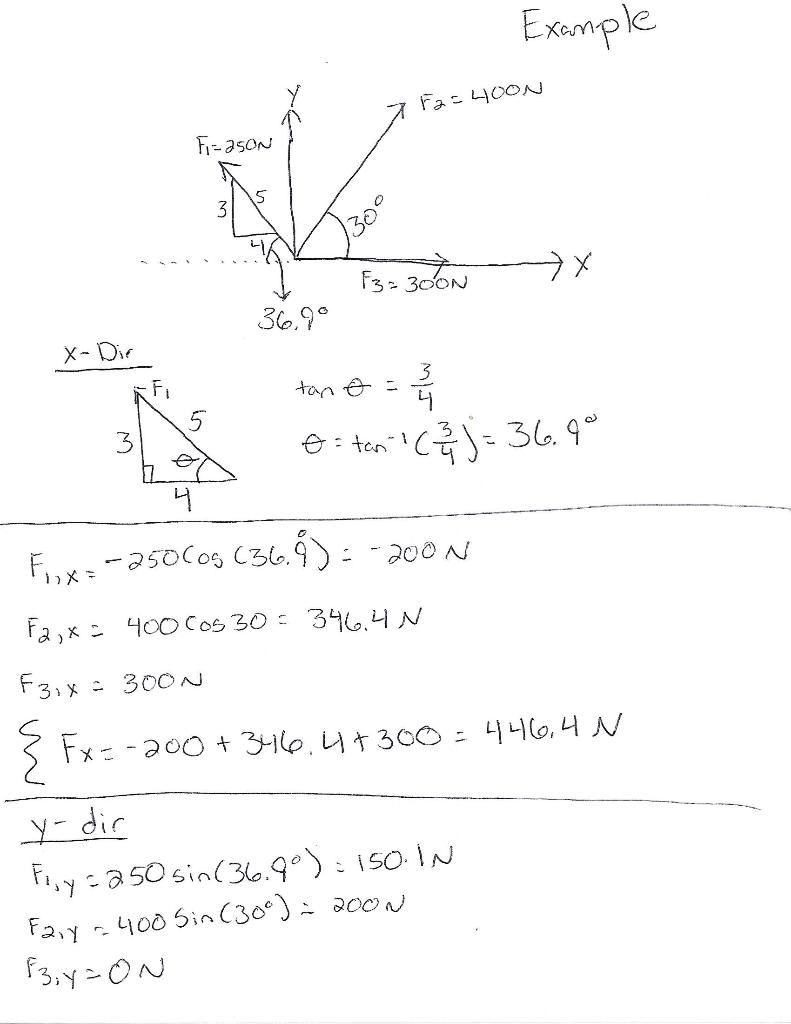 Example
Y
F2 = 400N
F1 = 250N
3
5
4
30°
X
F3 = 300N
36.9°
x-Dir
F1
3
5
θ
4
tan θ = 3/4
θ = tan⁻¹(3/4) = 36.9°
F1,x = -250Cos(36.9°) = -200N
F2,x = 400Cos30 = 346.4N
F3,x = 300N
Σ Fx = -200 + 346.4 + 300 = 446.4 N
y-dir
F1,y = 250sin(36.9°) = 150.1N
F2,y = 400Sin(30°) = 200N
F3,y = 0N